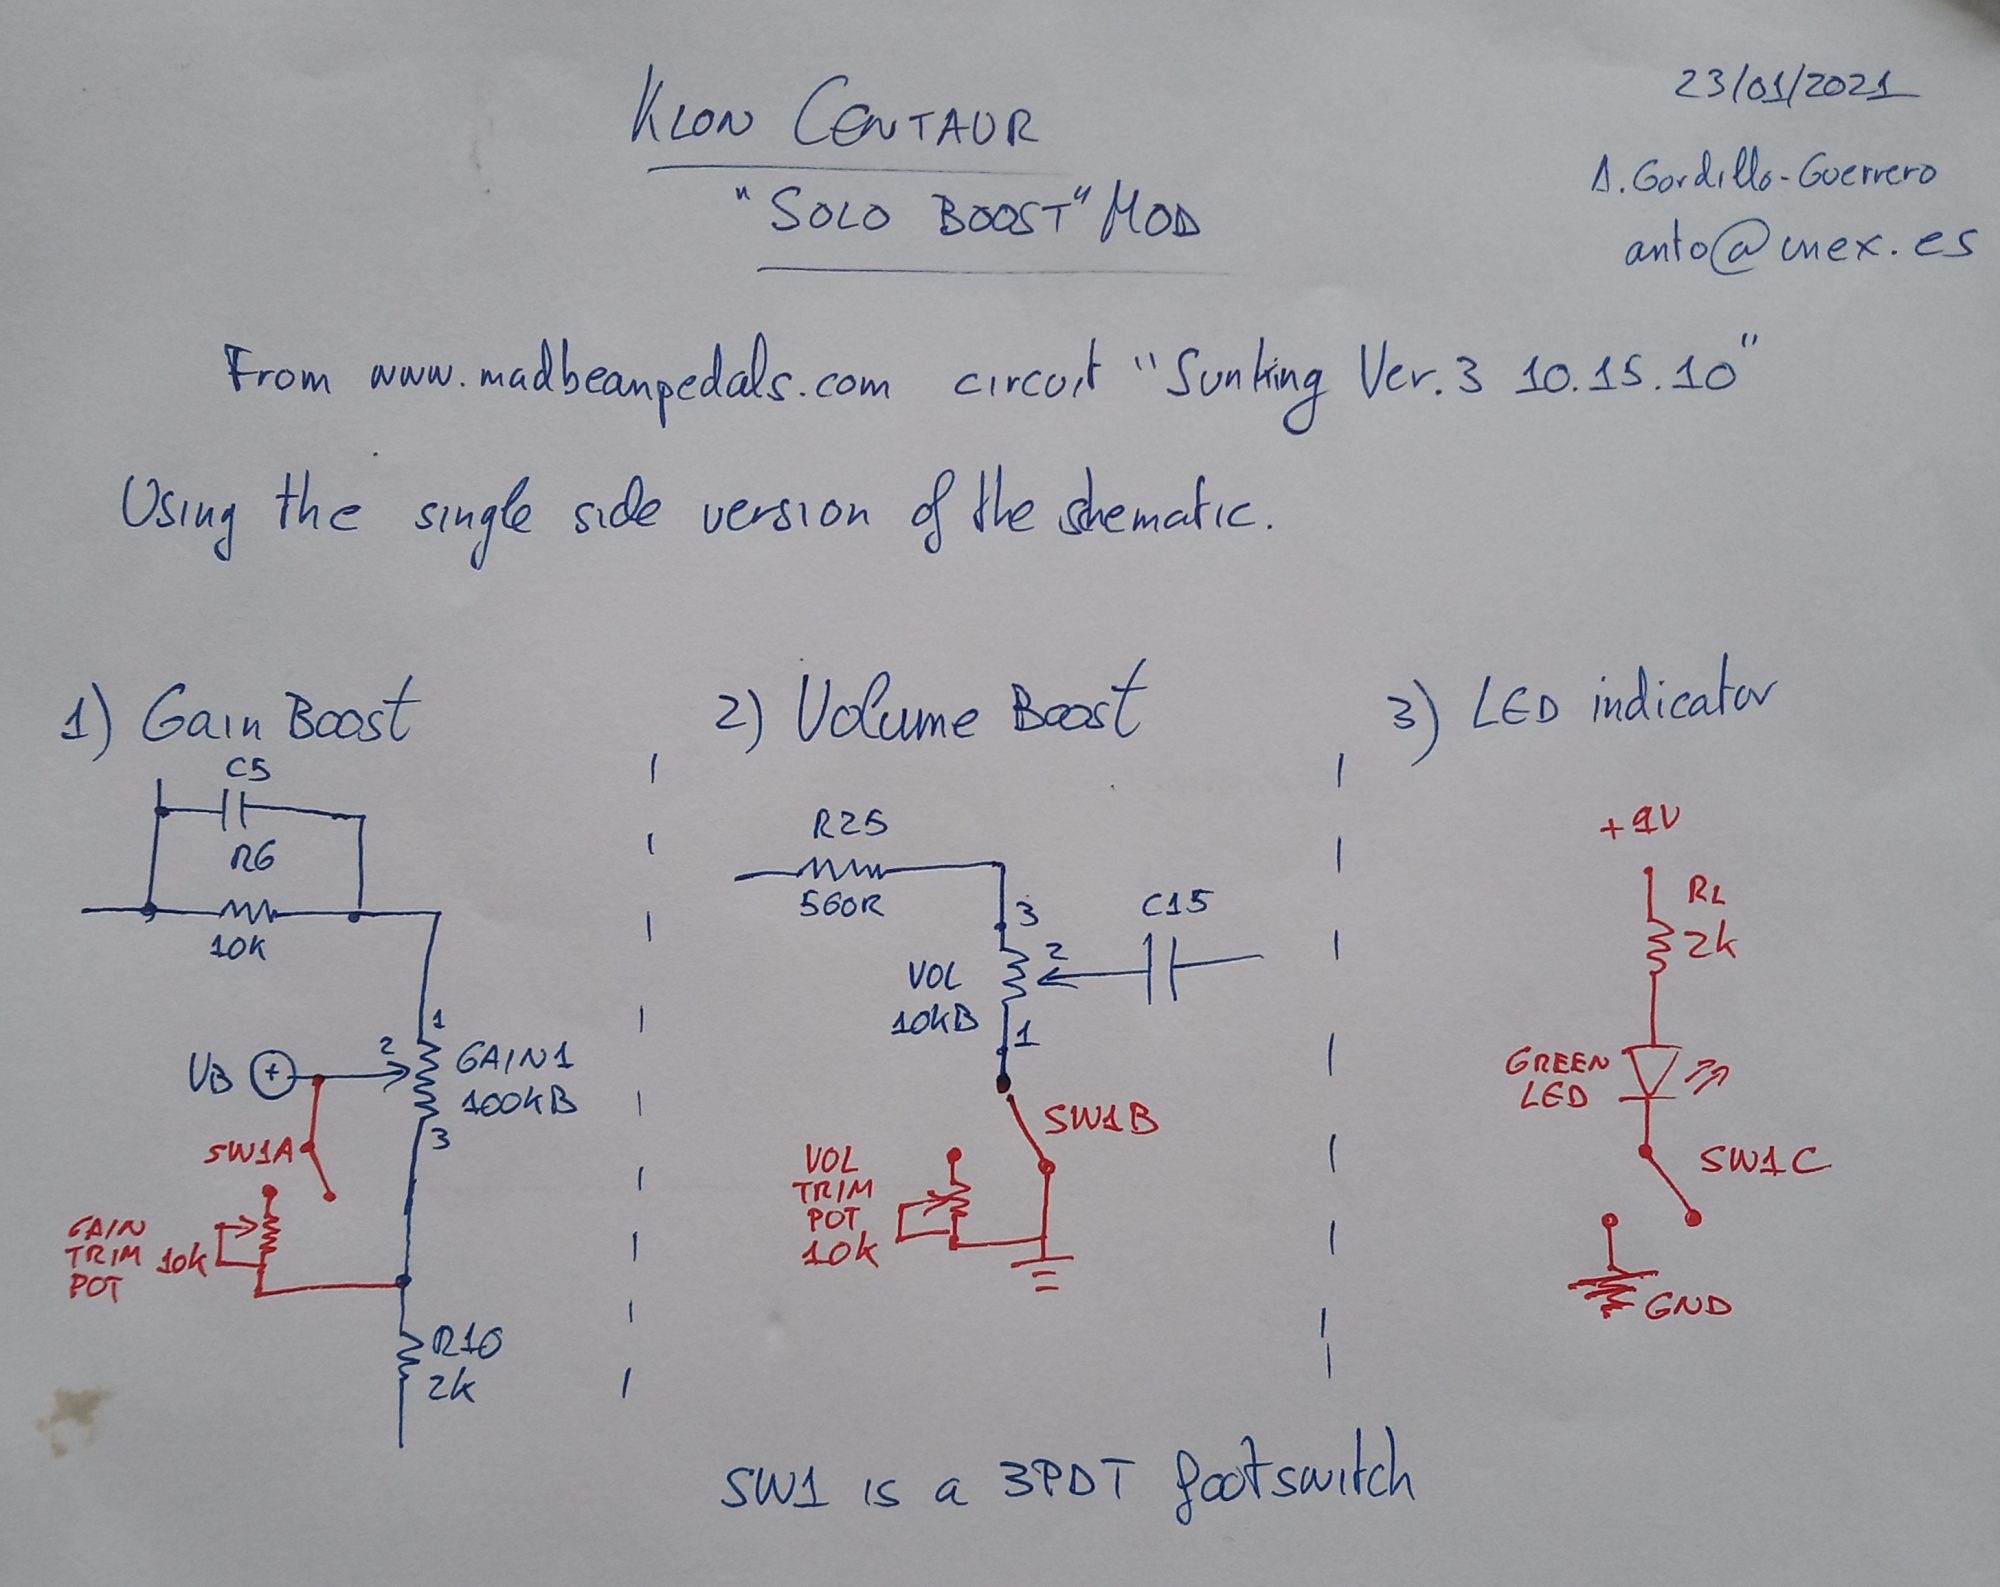 KLON CENTAUR
"SOLO BOOST" MOD
23/01/2021
A. Gordillo-Guerrero
anto@unex.es
From www.madbeanpedals.com circuit "Sunking Ver.3 10.15.10"
Using the single side version of the shematic.
1) Gain Boost
C5
R6
10K
1
2
VB +
GAIN1
100kB
3
SW1A
GAIN
TRIM 10k
POT
R10
2k
2) Volume Boost
R25
560R
3
C15
2
VOL
10kB
1
SW1B
VOL
TRIM
POT
10k
3) LED indicator
+9V
RL
2k
GREEN
LED
SW1C
GND
SW1 is a 3PDT footswitch